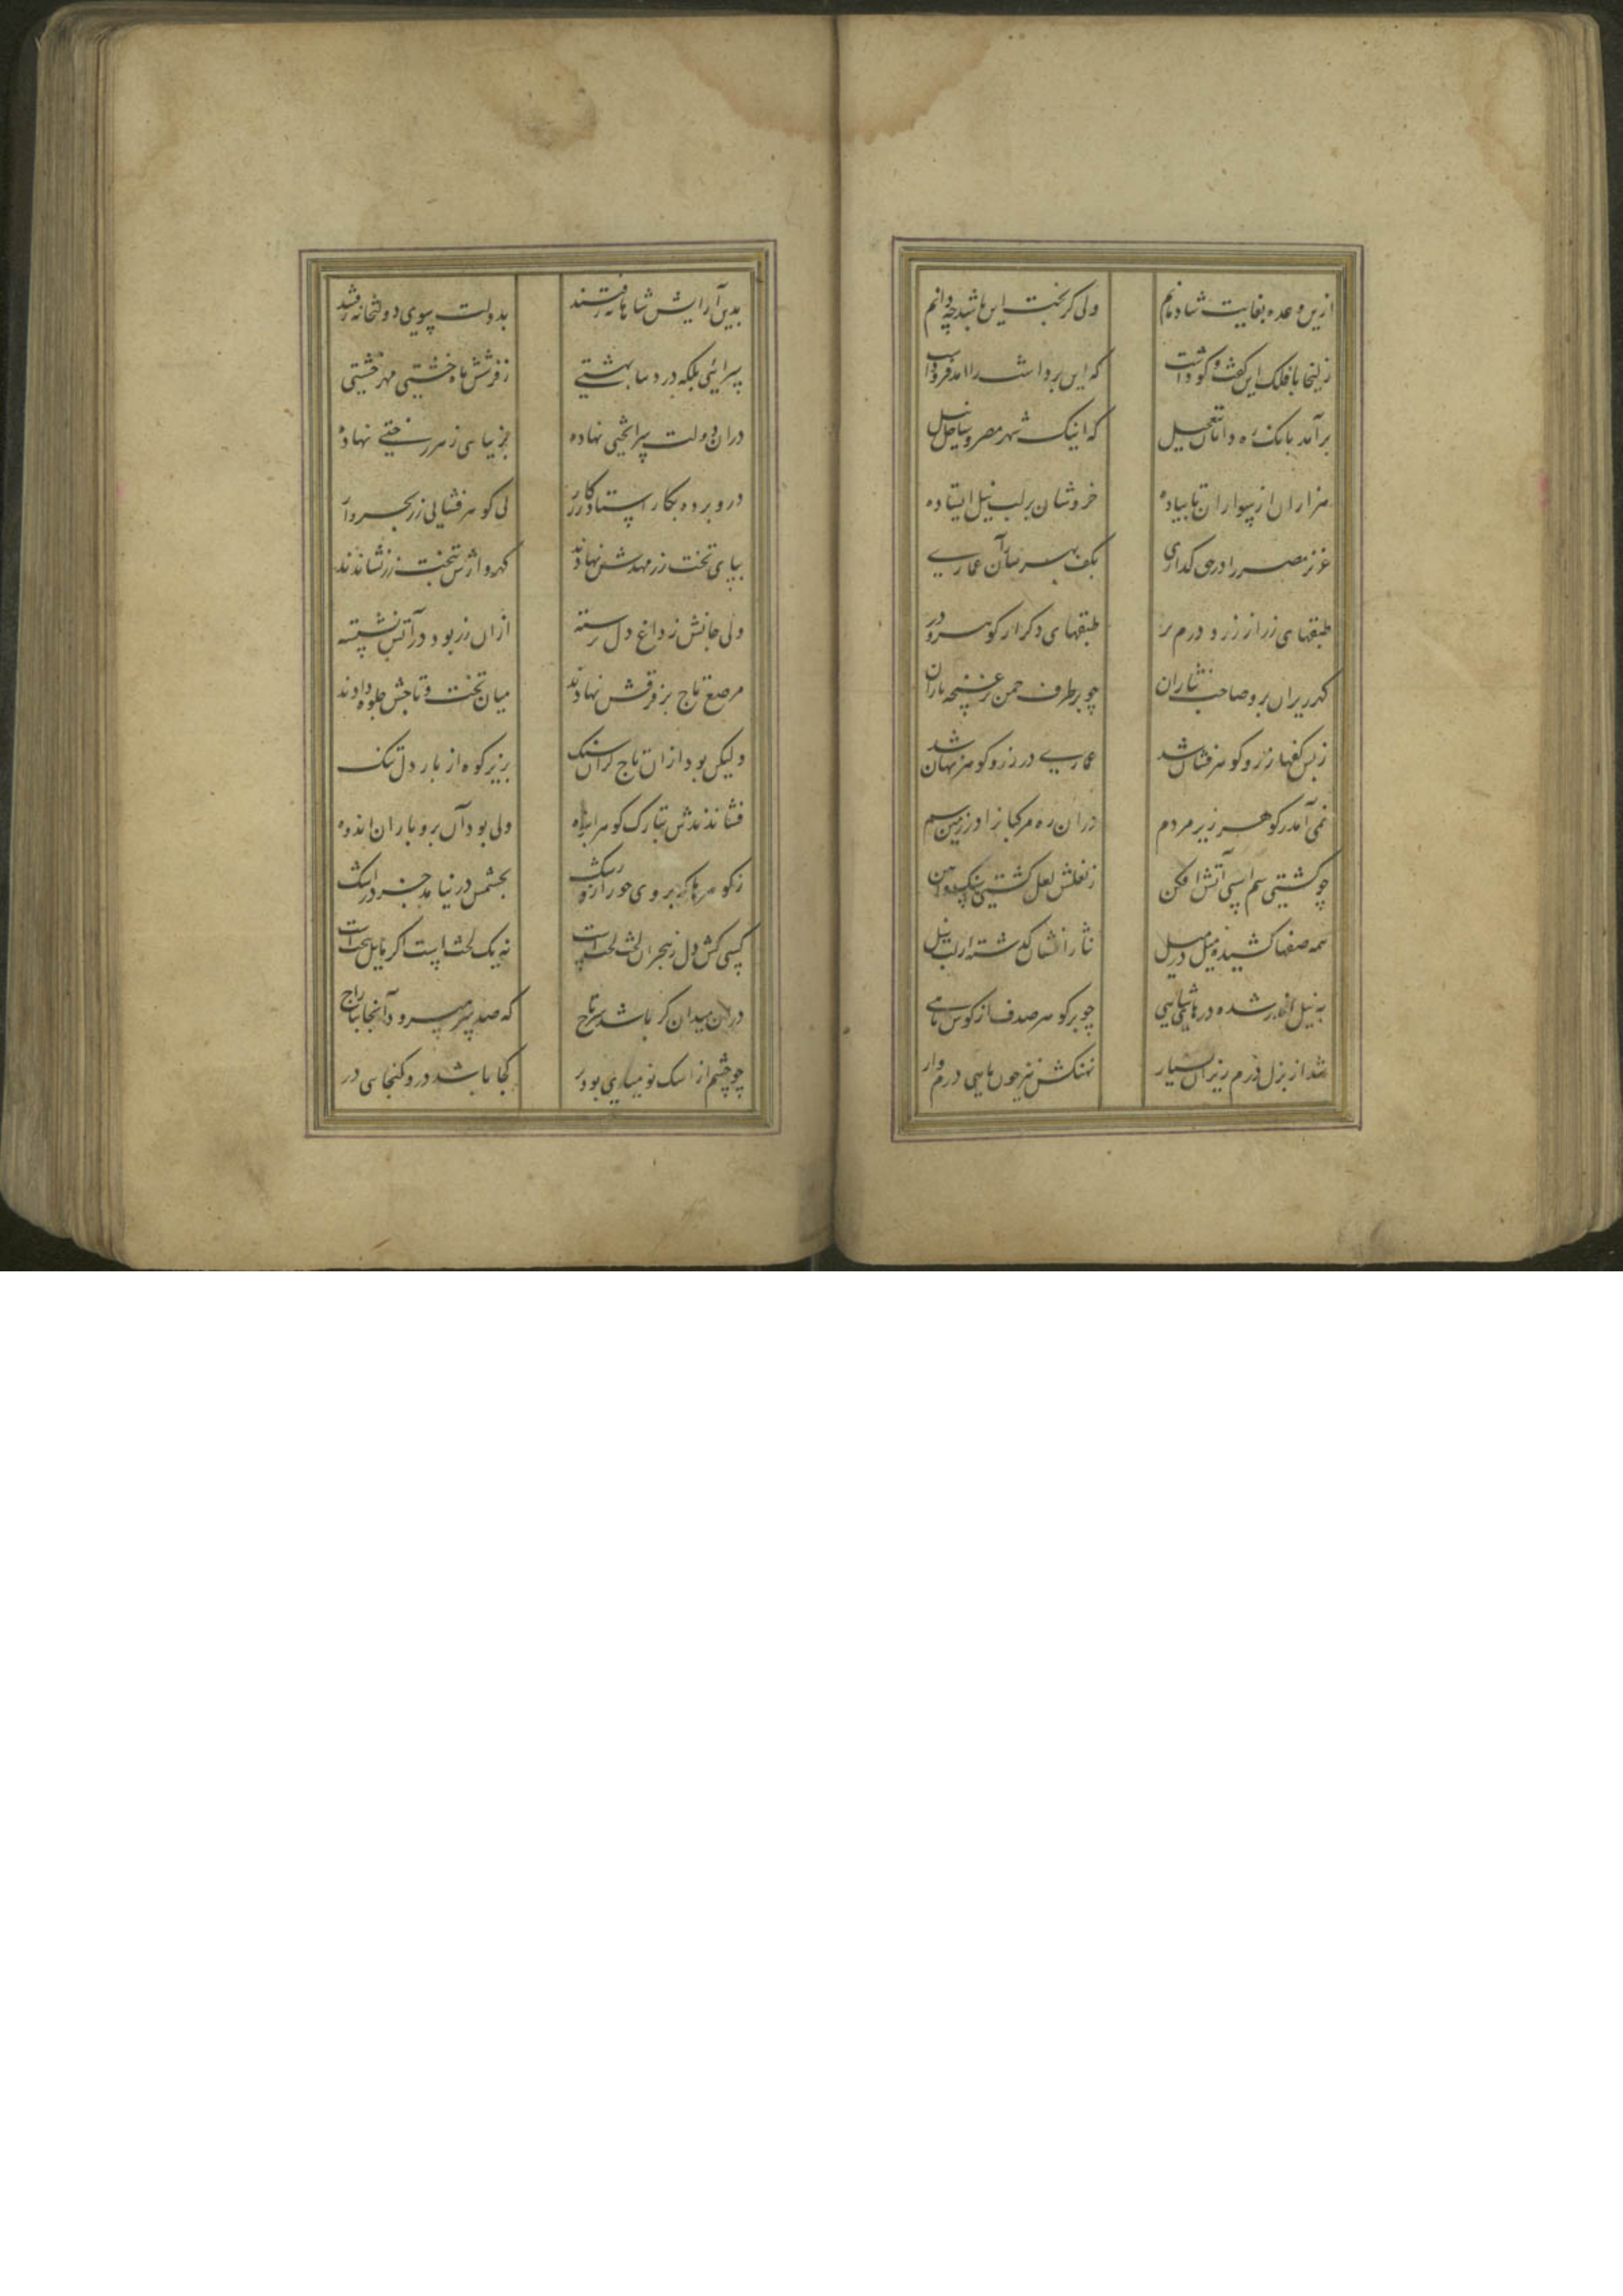 ازین وعده بغایت شادمانم ولی گر بخت این باشد چه دانم
زلیخا با فلک این گفت و گو داشت که این بردا شت را آمد فرودآ
برآمد بانک ره دانان بتعجیل که اینک شهر مصر و ساحل نیل
هزاران از سواران تا پیاده خروشان بر لب نیل ایستاده
عزیز مصر را در حق گذاری بکف بهر نثار آن عماری
طبقهای زر از زر و درم پر طبقهای دکر از کوهر و در
کهرریزان برو صاحب نثاران چو بر طرف چمن بر غنچه باران
ز بس کفها زر و کوهر فشان شد عماری در زر و کوهر نهان شد
نمی آمد ز کوهر زیر مردم در آن ره مرکبانرا در زمین سم
چو کشتی سم اسپی آتش افکن ز نعلش لعل کشتی سنک و آهن
همه صفها کشیده میل در میل نثار افشان گذشته از لب نیل
به نیل اندر شده در هاشاهی چو پر کوهر صدف از کوش ماهی
شد از بذل درم ریزان بسیار نهنکش نیز چون ماهی درم وار
بدین آرایش شاهانه رفتند بدولت سوی دولتخانه رفتند
سرایی بلکه در دنیا بهشتی ز فرشش ماه خشتی مهر خشتی
در آن دولت سرا تختی نهاده بزیبایی ز هر تختی نهاده
درو برده بکار استاد زرکار پی کوهر فشانی زر بخروار
بپای تخت زر مهدش نهادند کهروارش بتخت زر نشاندند
ولی جانش ز داغ دل نرسته از آن زر بود در آتش نشسته
مرصع تاج بر فرقش نهادند میان تخت و تاجش جلوه دادند
ولیکن بود از آن تاج گران سنک بزیر کوه از بار دل تنک
فشاندندش بتارک کوهر انبوه ولی بود آن برو باران اندوه
ز کوهرها که برو ی حور را زو رشک بچشمش در نیامد جز در اشک
کسی کش دل ز هجران لخت لخت است نه یک لخت است اکر مایل بتخت است
در آن میدان که را باشد سر تاج که صد سر میرود آنجا بتاراج
چو چشم از اشک نومیدی بود پر کجا باشد درو کنجای در